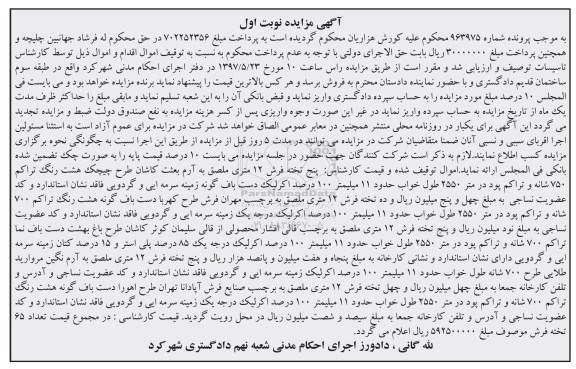 آگهی مزایده نوبت اول
به موجب پرونده شماره ۹۶۳۹۷۵ محکوم علیه کورش هزاریان محکوم گردیده است به پرداخت مبلغ ۷۰۲۲۵۲۳۵۶ در حق محکوم له فرشاد جهانبین چلیچه و
همچنین پرداخت مبلغ ۳۰۰۰۰۰۰۰ ریال بابت حق الاجرای دولتی با توجه به عدم پرداخت محکوم به نسبت به توقیف اموال اقدام و اموال ذیل توسط کارشناس
تاسیسات توصیف و ارزیابی شد و مقرر است از طریق مزایده راس ساعت ۱۰ مورخ ۱۳۹۷/۵/۲۳ در دفتر اجرای احکام مدنی شهرکرد واقع در طبقه سوم
ساختمان قدیم دادگستری و با حضور نماینده دادستان محترم به فروش برسد و هر کس بالاترین قیمت را پیشنهاد نماید برنده مزایده خواهد بود و می بایست فی
المجلس ۱۰ درصد مبلغ مورد مزایده را به حساب سپرده دادگستری واریز نماید و قبض بانکی آن را به این شعبه تسلیم نماید و مابقی مبلغ را حداکثر ظرف مدت
یک ماه از تاریخ مزایده به حساب سپرده واریز نماید در غیر این صورت وجوه واریزی پس از کسر هزینه مزایده به نفع صندوق دولت ضبط و مزایده تجدید
می گردد این آگهی برای یکبار در روزنامه محلی منتشر همچنین در معابر عمومی الصاق خواهد شد شرکت در مزایده برای عموم آزاد است به استثنا مسئولین
اجرا اقربای سببی و نسبی آنان ضمنا متقاضیان شرکت در مزایده می توانند در مدت ۵ روز قبل از مزایده از طریق این اجرا نسبت به چگونگی نحوه برگزاری
مزایده کسب اطلاع نمایند.لازم به ذکر است شرکت کنندگان جهت حضور در جلسه مزایده می بایست ۱۰ درصد قیمت پایه را به صورت چک تضمین شده
بانکی فی المجلس ارائه نماید.اموال توقیف شده و قیمت کارشناس: پنج تخته فرش ۱۲ متری ملصق به آرم بعثت کاشان طرح چیچک هشت رنگ تراکم
۷۵۰ شانه و تراکم پود در متر ۲۵۵۰ طول خواب حدود ۱۱ میلیمتر ۱۰۰ درصد اکرلیک دست باف گونه زمینه سرمه ایی و گردویی فاقد نشان استاندارد و کد
عضویت نساجی به مبلغ چهل و پنج میلیون ریال و ده تخته فرش ۱۲ متری ملصق به برچسب مهران فرش طرح کهربا دست باف گونه هشت رنگ تراکم ۷۰۰
شانه و تراکم پود در متر ۲۵۵۰ طول خواب حدود ۱۱ میلیمتر ۱۰۰ درصد اکرلیک درجه یک زمینه سرمه ایی و گردویی فاقد نشان استاندارد و کد عضویت
نساجی به مبلغ نود میلیون ریال و پنج تخته فرش ۱۲ متری ملصق به برچسب قالی افشار محصولی از قالی سلیمان کوثر کاشان طرح باغ بهشت دست باف نما
تراکم ۷۰۰ شانه و تراکم پود در متر ۲۵۵۰ طول خواب حدود ۱۱ میلیمتر ۱۰۰ درصد اکرلیک درجه یک ۸۵ درصد پلی استر و ۱۵ درصد کتان زمینه سرمه
ایی و گردویی دارای نشان استاندارد و نشانی کارخانه به مبلغ پنجاه و هفت میلیون و پانصد هزار ریال و پنج تخته فرش ۱۲ متری ملصق به آرم نگین مروارید
طلایی طرح ۷۰۰ شانه طول خواب حدود ۱۱ میلیمتر ۱۰۰ درصد اکرلیک زمینه سرمه ایی و گردویی فاقد نشان استاندارد و کد عضویت نساجی و آدرس و
تلفن کارخانه جمعا به مبلغ چهل میلیون ریال و چهل تخته فرش ۱۲ متری ملصق به برچسب صنایع فرش آپادانا تهران طرح اهورا دست باف گونه هشت رنگ
تراکم ۷۰۰ شانه و تراکم پود در متر ۲۵۵۰ طول خواب حدود ۱۱ میلیمتر ۱۰۰ درصد اکرلیک درجه یک زمینه سرمه ایی و گردویی فاقد نشان استاندارد و کد
عضویت نساجی و آدرس و تلفن کارخانه جمعا به مبلغ سیصد و شصت میلیون ریال در محل رویت گردید. قیمت کارشناسی : در مجموع قیمت تعداد ۶۵
تخته فرش موصوف مبلغ ۵۹۲۵۰۰۰۰۰ ریال اعلام می گردد.
لله گانی ، دادورز اجرای احکام مدنی شعبه نهم دادگستری شهرکرد